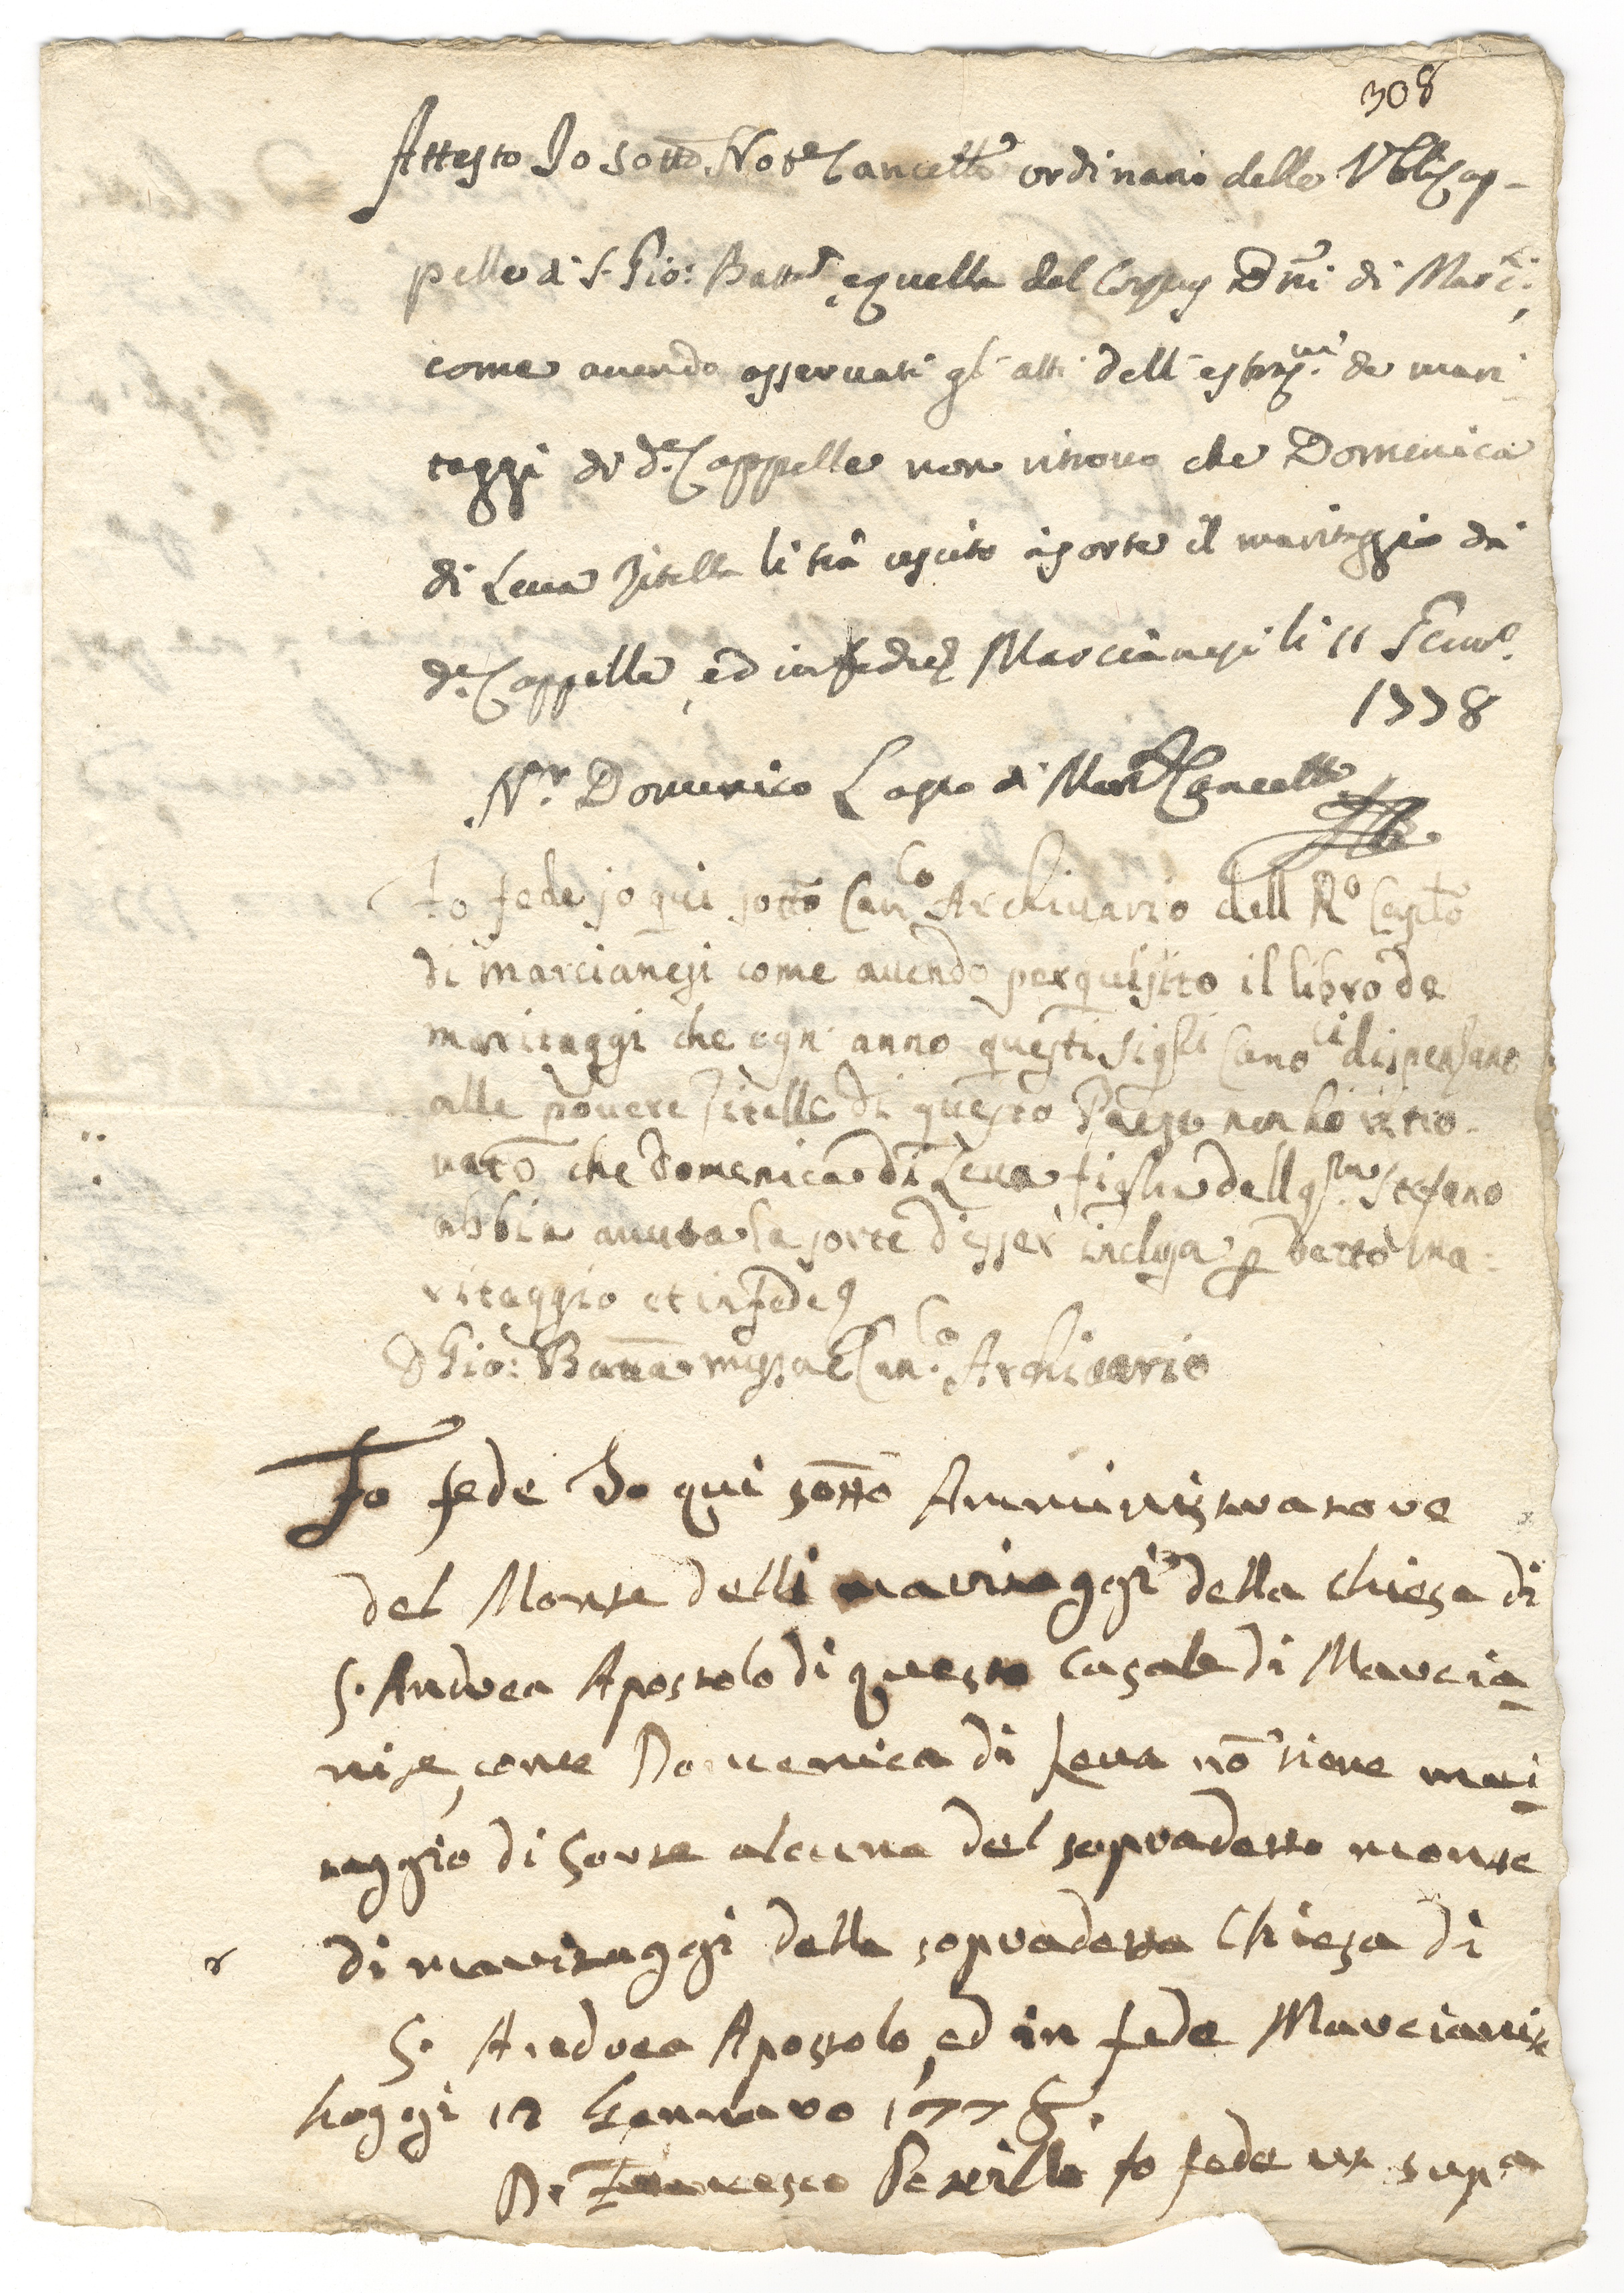 308
Attesto Io sotto Not.e Cancell.e ordinario delle Vbli Cap-
pelle di S. Gio: Batt.a e quella del Corpus Dni di Marc.i,
come auendo osseruati gl'atti dell'estraz.ni de mari
taggi di d.e Cappelle non ritrouo che Domenica
di Leua Zitella li sia uscito à sorte il maritaggio di
d.e Cappelle, ed in fede Marcianisi li 11 Genn.o
1778
N.r Domenico Lasco di Marc. Cancell.e
Fo fede jo qui sotto Can.co Archiuario dell R.o Caplo
di Marcianesi come auendo perquisito il libro de
maritaggi che ogn'anno questi Sig.li Cano.ci dispenzano
alle pouere Zitelle di questo Paese non hò ritro-
uato che Domenica di Leua figlia dell q.m Stefano
abbia auuta la sorte d'esser inclusa p detto ma-
ritaggio et in fede
D Gio: Batta Musone Can.co Archiuario
Fo fede Io qui sotto Amministratore
del Monte delli maritaggi della Chiesa di
S. Andrea Apostolo di questo Casale di Marcia
nise, come Domenica di Leua nō tiene mari
taggio di sorte alcuna del sopradetto monte
di maritaggi della sopradetta Chiesa di
S. Andrea Apostolo, ed in fede Marcianise
hoggi 12 Gennaro 1778.
D. Francesco Petrillo fo fede ut sup.a